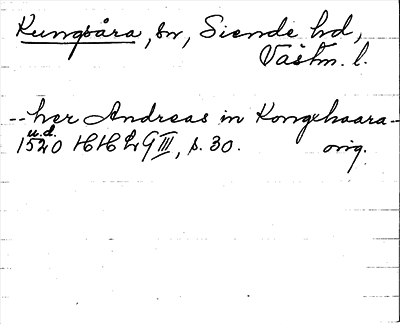 Kungsåra, sn, Siende hd,
Västm. l.
-- her Andreas in Kongxhaara --
u.d.
1520 HH2 G III, s. 30. orig.